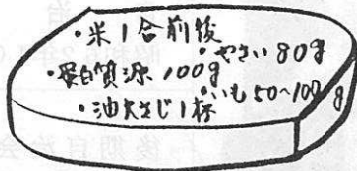 ・米1合前後
・やさい80g
・蛋白質源100g
・いも50〜100g
・油大さじ1杯